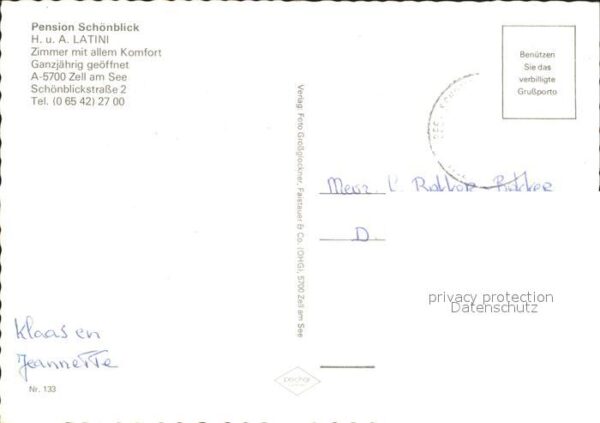 Pension Schönblick
H. u. A. LATINI
Zimmer mit allem Komfort
Ganzjährig geöffnet
A-5700 Zell am See
Schönblickstraße 2
Tel. (0 65 42) 27 00
Benützen
Sie das
verbilligte
Grußporto
Verlag: Foto Großglockner, Faistauer & Co. (OHG), 5700 Zell am See
D.
privacy protection
Datenschutz
Klaas en
Jeannette
Nr. 133